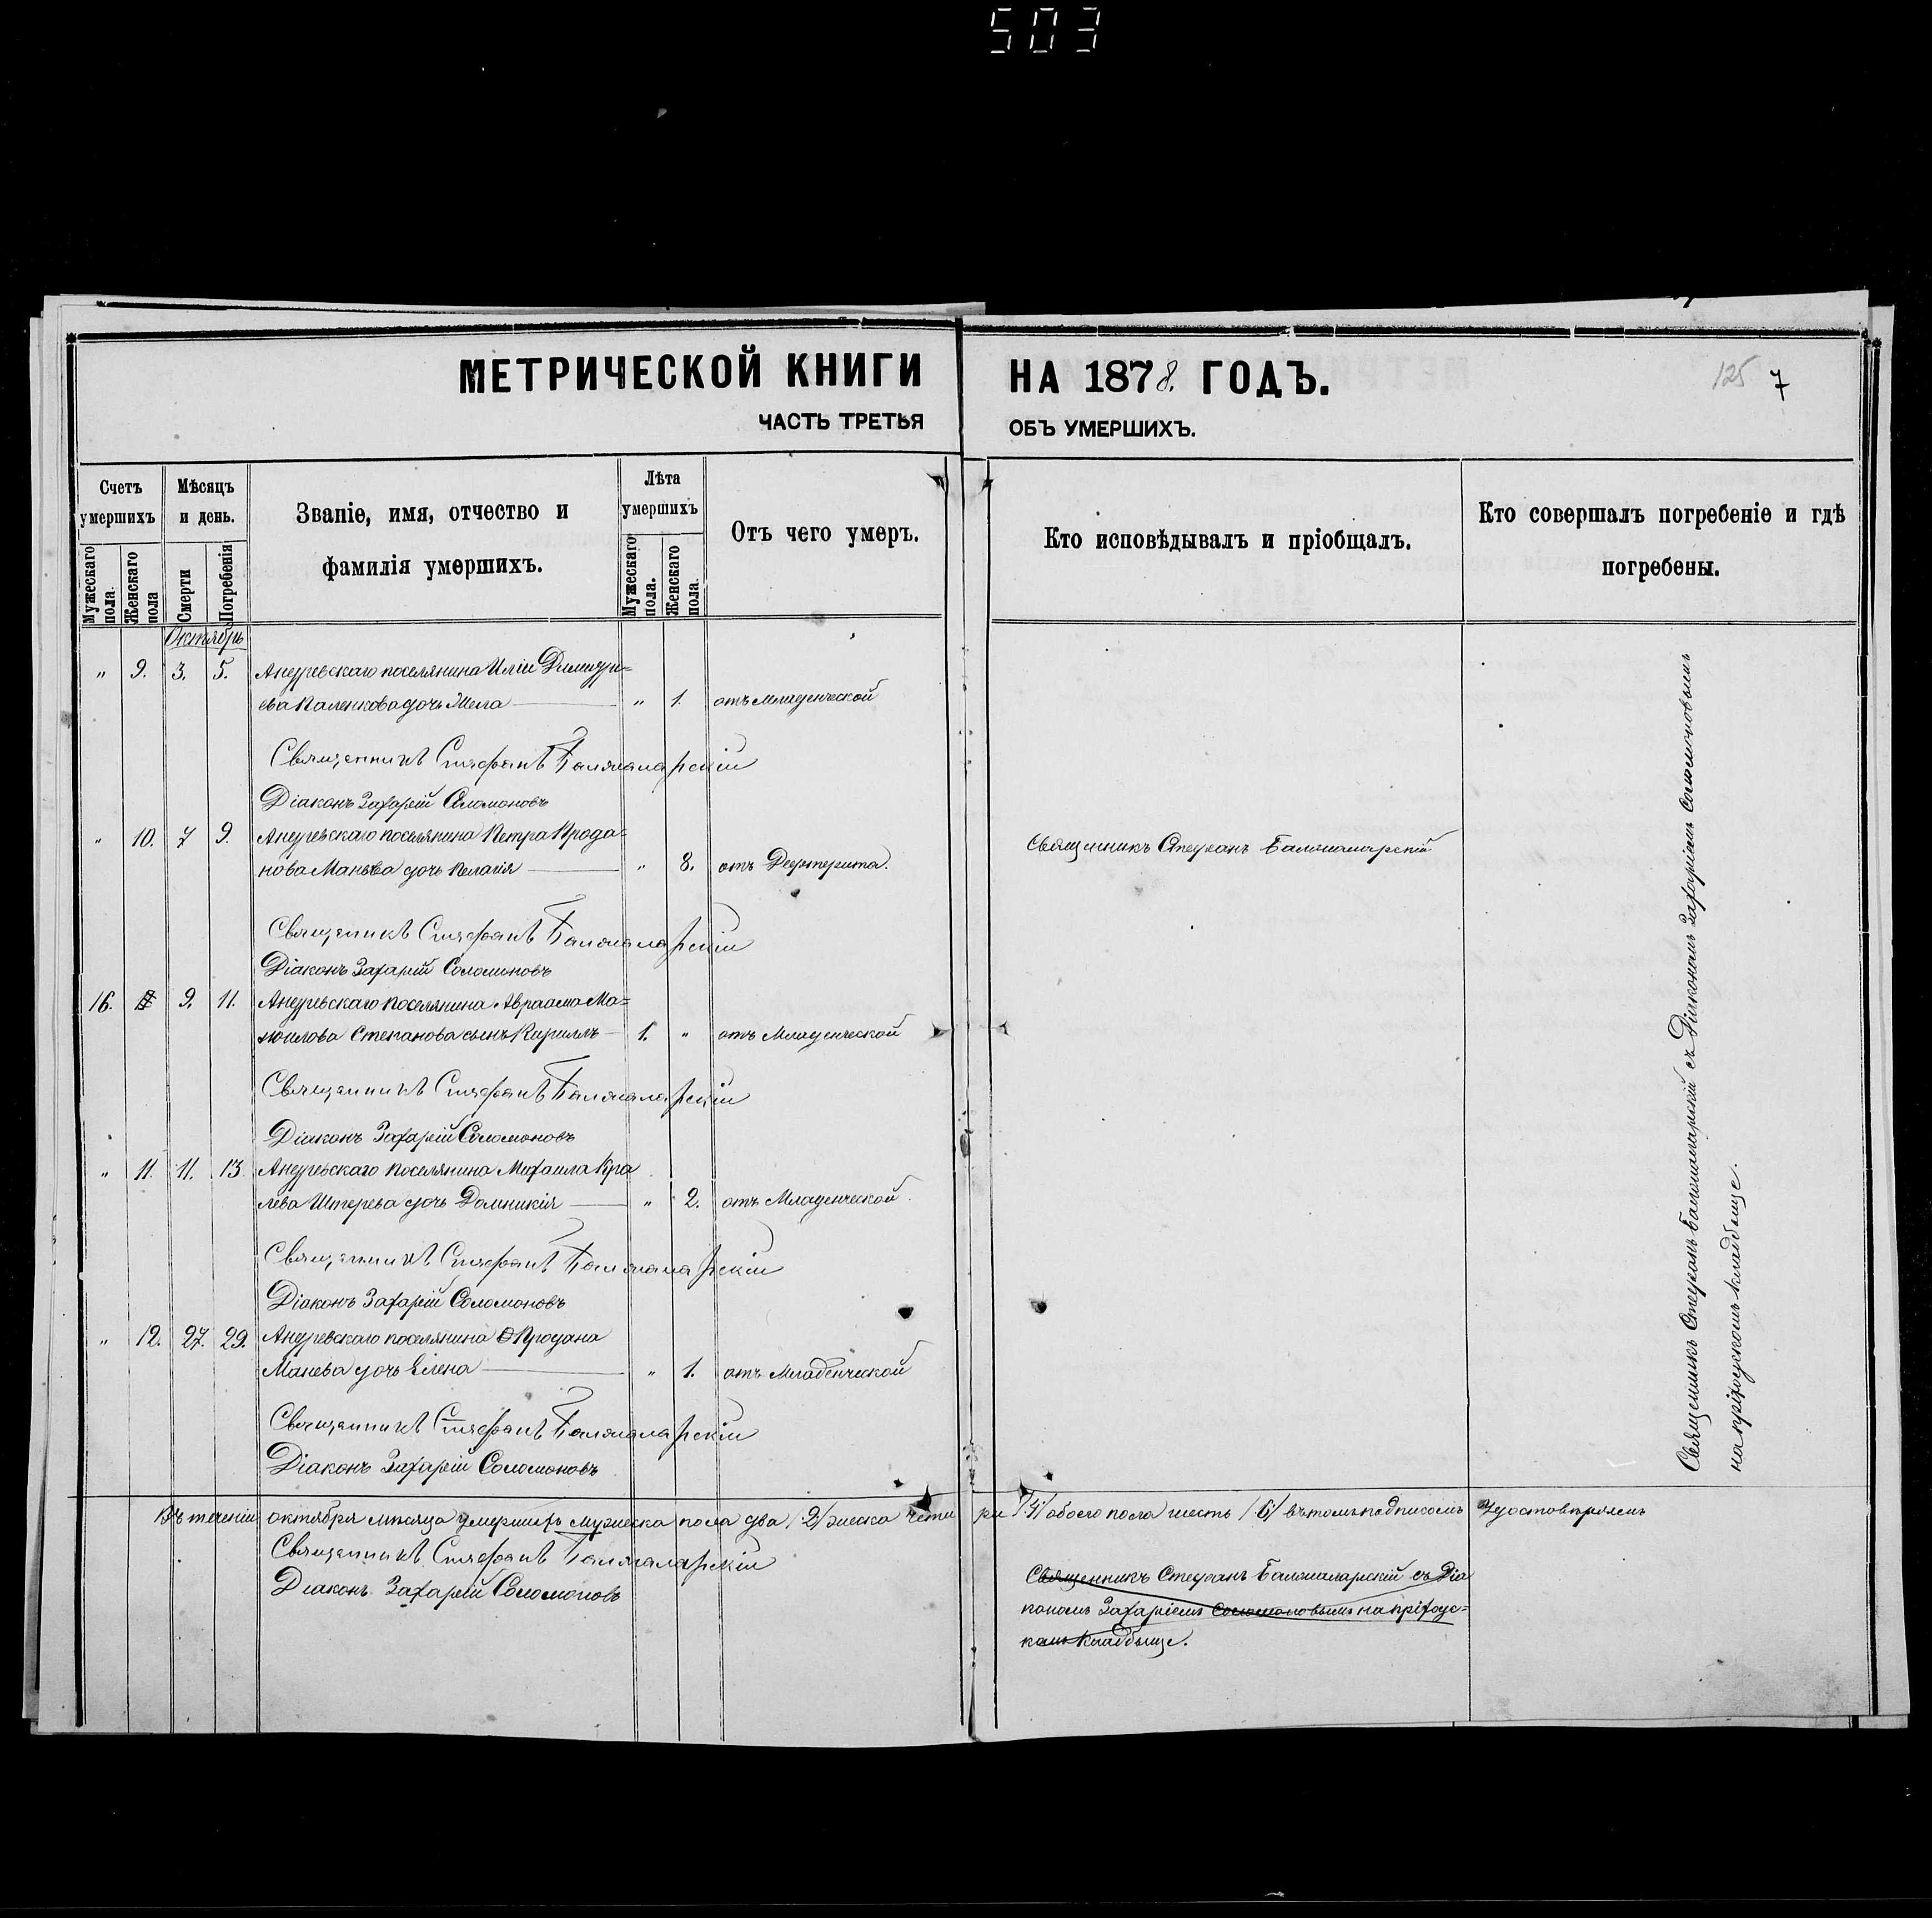 503
МЕТРИЧЕСКОЙ КНИГИ НА 1878. ГОДЪ.
125 7
ЧАСТЬ ТРЕТЬЯ ОБЪ УМЕРШИХЪ.
Счетъ умершихъ
Мѣсяцъ и день.
Званіе, имя, отчество и фамилія умершихъ.
Лѣта умершихъ
Отъ чего умеръ.
Кто исповѣдывалъ и пріобщалъ.
Кто совершалъ погребеніе и гдѣ погребены.
Мужескаго пола.
Женскаго пола
Смерти
Погребенія
Мужескаго пола.
Женскаго пола.
Октябрь
" 9. 3. 5. поселянина Иліи Димитри=
ева дочь " 1. отъ Младенческой
Священникъ Стефанъ Баломаларскіи
Діаконъ Захарій Соломоновъ
" 10. 7 9. поселянина Петра Прода=
нова Манѣва дочь Пелагія " 8. отъ Дефтерита.
Священникъ Стефанъ Баломаларскій
Священникъ Стефанъ Баломаларскіи
Діаконъ Захарій Соломоновъ
16. 9. 11. поселянина Авраама Ма=
нойлова Степанова сынъ Кириллъ 1. " отъ Младенческой
Священникъ Стефанъ Баломаларскіи
Діаконъ Захарій Соломоновъ
" 11. 11. 13. поселянина Михаила Кра
лева Штерева дочь Домникія " 2. отъ Младенческой.
Священникъ Стефанъ Баломаларскіи
Діаконъ Захарій Соломоновъ
" 12. 27. 29. поселянина Продана
Манева дочь Елена " 1. отъ Младенческой
Священникъ Стефанъ Баломаларскіи
Діаконъ Захарій Соломоновъ
Священникъ Стефанъ Баломаларскій съ Діакономъ Захаріемъ Соломоновымъ
на приходскомъ кладбище.
Въ теченіи октября мѣсяца умершихъ мужеска пола два /2/ женска четы ри /4/ обоего пола шесть /6/ въ томъ подписомъ Удостовѣряемъ
Священникъ Стефанъ Баломаларскіи
Діаконъ Захарій Соломоновъ
Священникъ Стефанъ Баломаларскій съ Діа
кономъ Захаріемъ Соломоновымъ на приходс=
комъ кладбище.